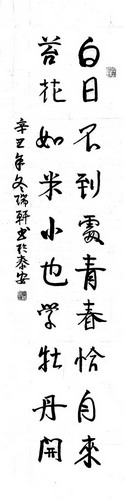 白日不到處青春恰自來
苔花如米小也學牡丹開
辛丑年冬瑞軒书於泰安